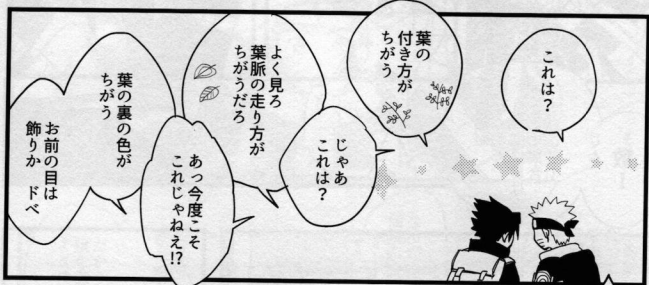 これは？
葉の
付き方が
ちがう
じゃあ
これは？
よく見ろ
葉脈の走り方が
ちがうだろ
あっ今度こそ
これじゃねえ!?
葉の裏の色が
ちがう
お前の目は
飾りか　ドベ